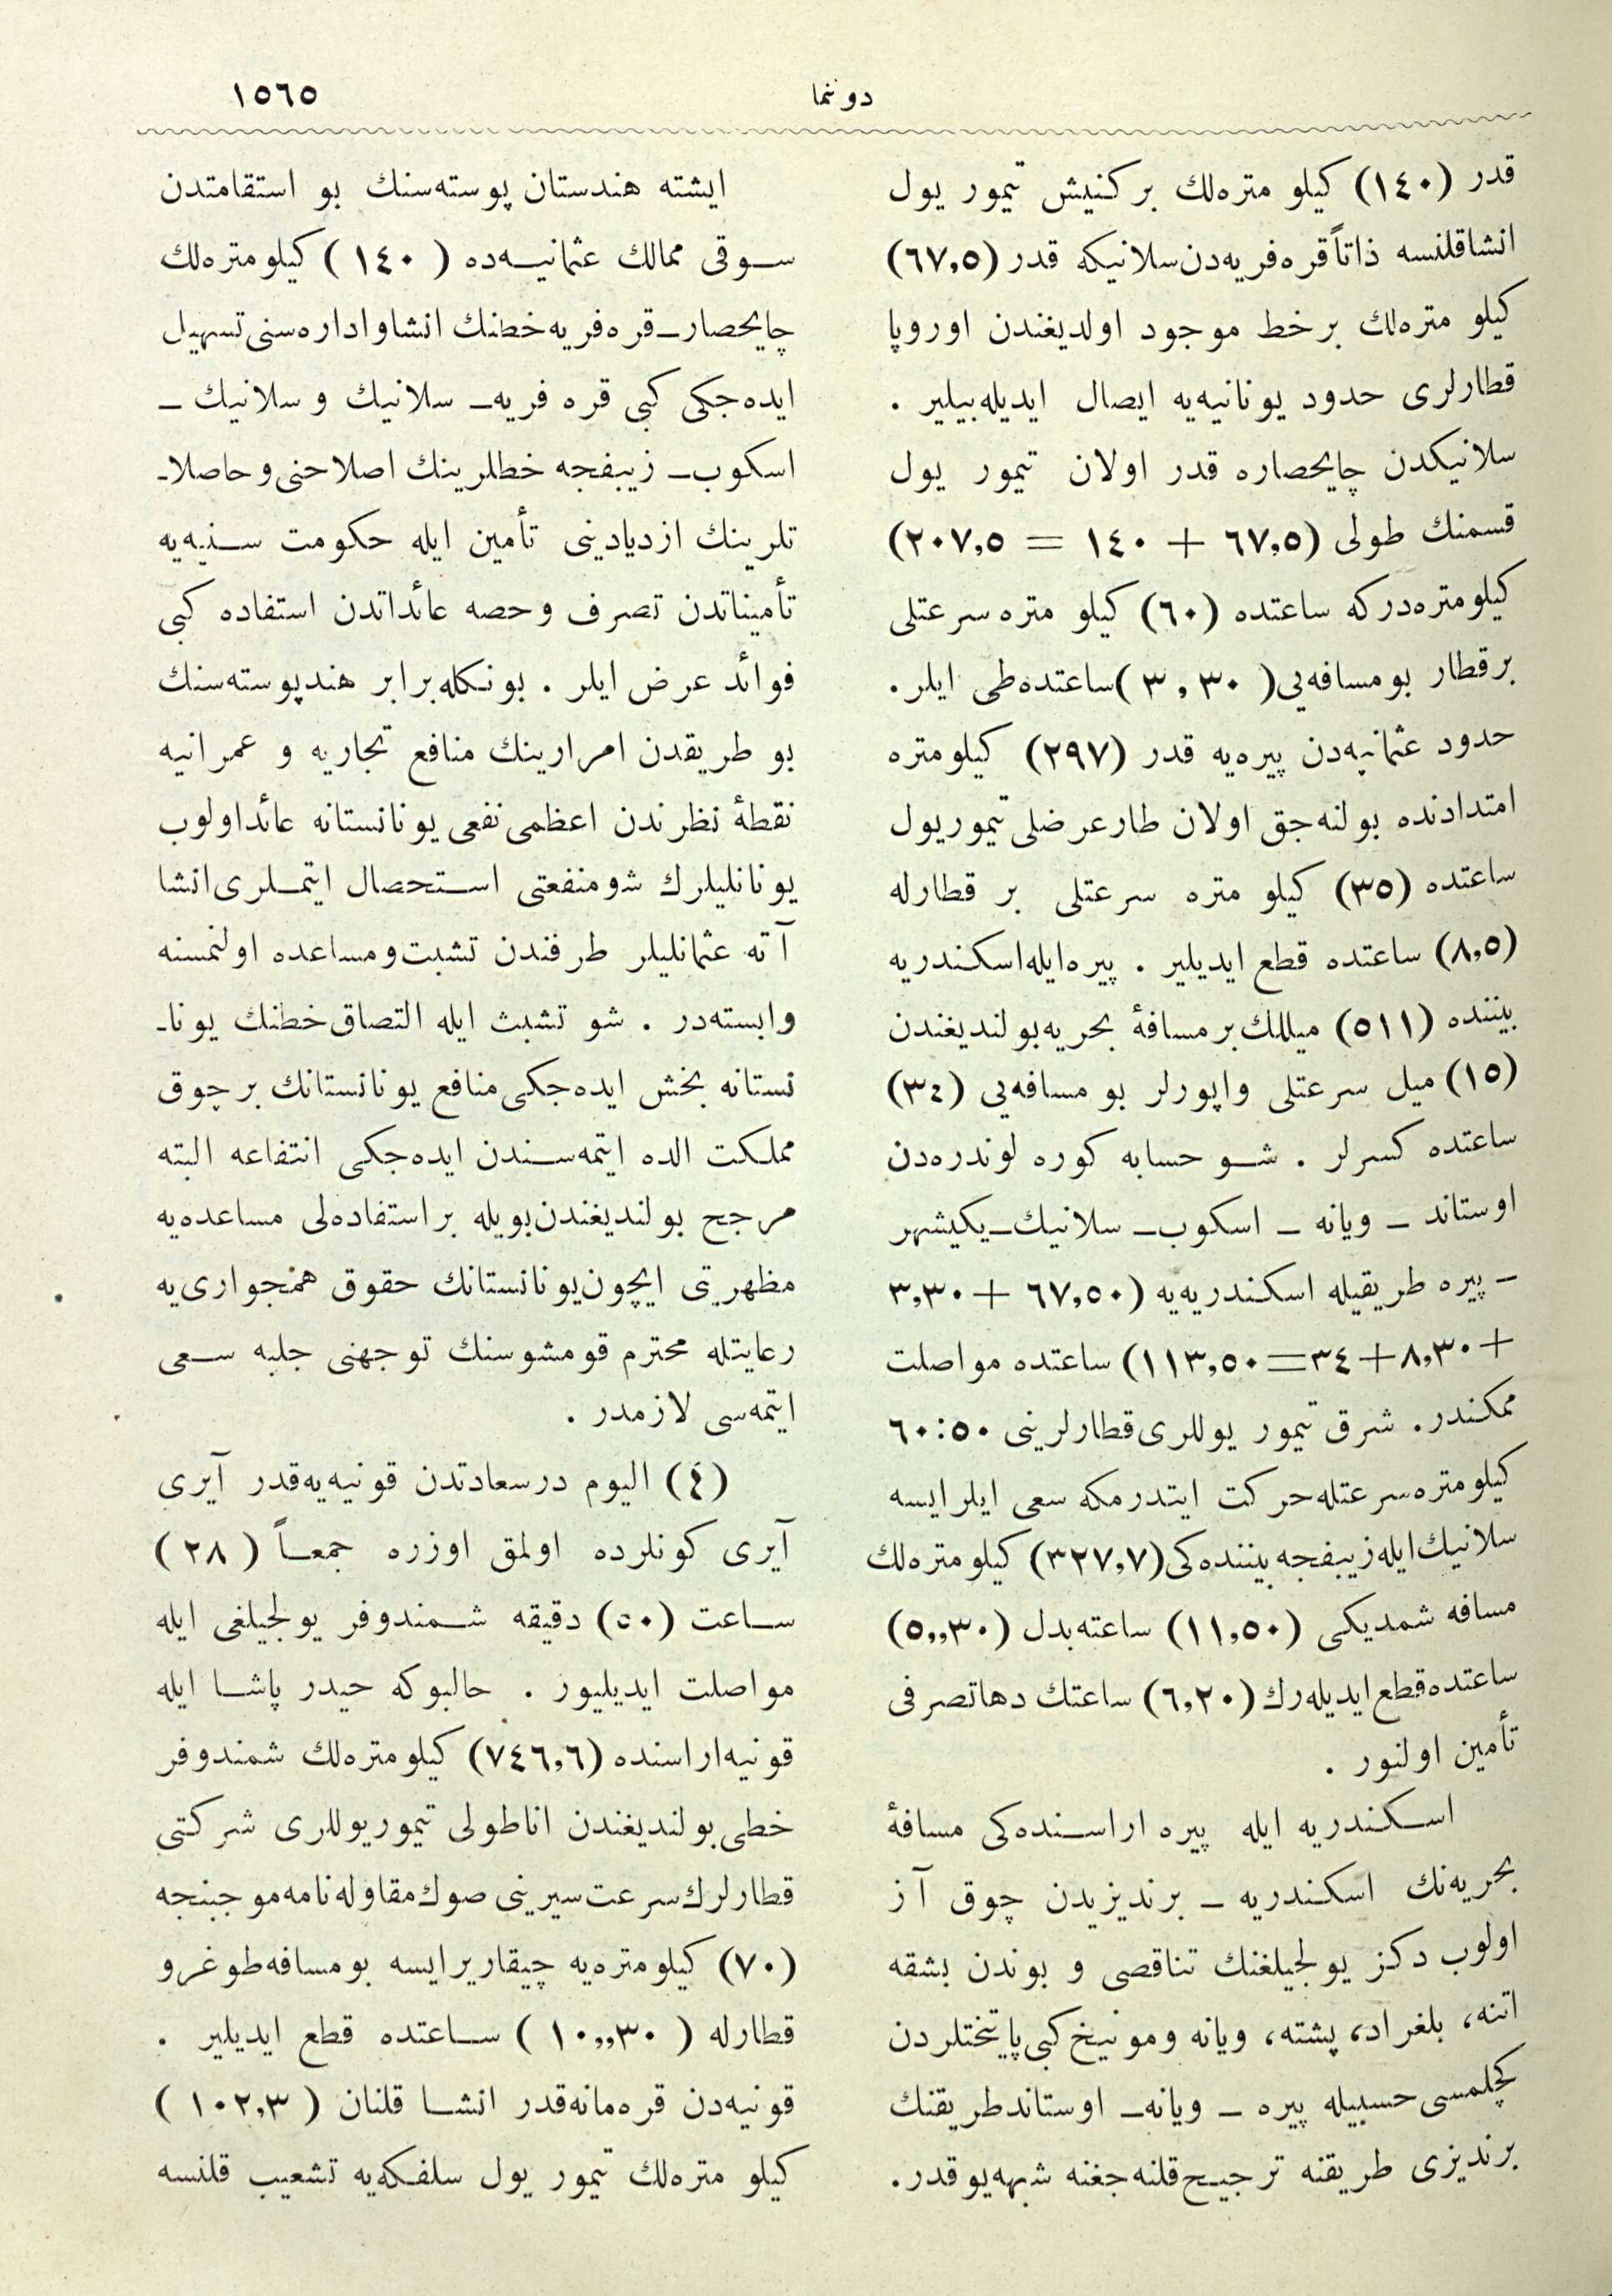 دوننما
١٥٦٥
قدر (١٤٠) كيلو متره‌لك بر كنيش تيمور يول
انشاقلنسه ذاتاً قره‌فريه‌دن سلانيكه قدر (٦٧,٥)
كيلو متره‌لك بر خط موجود اولديغندن اوروپا
قطارلرى حدود يونانيه‌يه ايصال ايديله‌بيلير .
سلانيكدن چايحصاره قدر اولان تيمور يول
قسمنك طولى (٦٧,٥ + ١٤٠ = ٢٠٧,٥)
كيلومتره‌دركه ساعتده (٦٠) كيلو متره سرعتلى
بر قطار بو مسافه‌يى (٣,٣٠) ساعتده طى ايلر.
حدود عثمانيه‌دن پيره‌يه قدر (٢٩٧) كيلومتره
امتدادنده بولنه‌جق اولان طار عرضلى تيموريول
ساعتده (٣٥) كيلو متره سرعتلى بر قطارله
(٨,٥) ساعتده قطع ايديلير . پيره‌ايله‌اسكندريه
بيننده (٥١١) ميللك بر مسافۀ بحريه‌بولنديغندن
(١٥) ميل سرعتلى واپورلر بو مسافه‌يى (٣٤)
ساعتده كسرلر . شو حسابه كوره لوندره‌دن
اوستاند ــ ويانه ــ اسكوب ــ سلانيك ــ يكيشهر
ــ پيره طريقيله اسكندريه‌يه (٦٧,٥٠ + ٣,٣٠
+ ٨,٣٠ + ٣٤ = ١١٣,٥٠) ساعتده مواصلت
ممكندر. شرق تيمور يوللرى قطارلرينى ٥٠:٦٠
كيلومتره سرعتله حركت ايتدرمكه سعى ايلر ايسه
سلانيك ايله زيبفجه بيننده‌كى (٣٢٧,٧) كيلومتره‌لك
مسافه شمديكى (١١,٥٠) ساعته بدل (٥,,٣٠)
ساعتده قطع ايديله‌رك (٦,٢٠) ساعتك دها تصرفى
تأمين اولنور .
اسكندريه ايله پيره اراسنده‌كى مسافۀ
بحريه‌نك اسكندريه ــ برنديزيدن چوق آز
اولوب دكز يولجيلغنك تناقصى و بوندن بشقه
اتنه، بلغراد، پشته، ويانه و مونيخ كبى پايتختلردن
كچلمسى حسبيله پيره ــ ويانه ــ اوستاند طريقنك
برنديزى طريقنه ترجيح قلنه‌جغنه شبهه يوقدر.
ايشته هندستان پوسته‌سنك بو استقامتدن
سوقى ممالك عثمانيه‌ده (١٤٠) كيلومتره‌لك
چايحصار ــ قره‌فريه خطنك انشا و اداره‌سنى تسهيل
ايده‌جكى كبى قره فريه ــ سلانيك و سلانيك ــ
اسكوب ــ زيبفجه خطلرينك اصلاحنى و حاصلا-
تلرينك ازديادينى تأمين ايله حكومت سنيه‌يه
تأميناتدن تصرف و حصه عائداتدن استفاده كبى
فوائد عرض ايلر . بونكله برابر هند پوسته‌سنك
بو طريقدن امرارينك منافع تجاريه و عمرانيه
نقطۀ نظرندن اعظمى نفعى يونانستانه عائد اولوب
يونانليلرك شو منفعتى استحصال ايتملرى انشا
آته عثمانليلر طرفندن تشبت و مساعده اولنمسنه
وابسته‌در . شو تشبث ايله التصاق خطنك يونا-
نستانه بخش ايده‌جكى منافع يونانستانك بر چوق
مملكت الده ايتمه‌سندن ايده‌جكى انتفاعه البته
مرجح بولنديغندن بويله بر استفاده‌لى مساعده‌يه
مظهريتى ايچون يونانستانك حقوق همجوارى‌يه
رعايتله محترم قومشوسنك توجهنى جلبه سعى
ايتمه‌سى لازمدر .
(٤) اليوم درسعادتدن قونيه‌يه قدر آيرى
آيرى كونلرده اولمق اوزره جمعاً (٢٨)
ساعت (٥٠) دقيقه شمندوفر يولجيلغى ايله
مواصلت ايديليور . حالبوكه حيدر پاشا ايله
قونيه اراسنده (٧٤٦,٦) كيلومتره‌لك شمندوفر
خطى بولنديغندن اناطولى تيموريوللرى شركتى
قطارلرك سرعت سيرينى صوك مقاوله‌نامه موجبنجه
(٧٠) كيلومتره‌يه چيقارير ايسه بو مسافه طوغرو
قطارله (١٠,,٣٠) ساعتده قطع ايديلير .
قونيه‌دن قره‌مانه قدر انشا قلنان (١٠٢,٣)
كيلو متره‌لك تيمور يول سلفكه‌يه تشعيب قلنسه